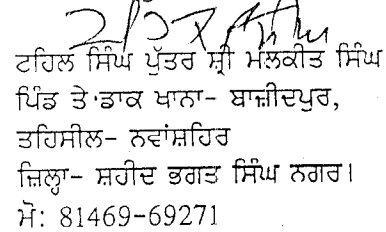 ਟਹਿਲ ਸਿੰਘ ਪੁੱਤਰ ਸ਼੍ਰੀ ਮਲਕੀਤ ਸਿੰਘ
ਪਿੰਡ ਤੇ ਡਾਕ ਖਾਨਾ- ਬਾਜ਼ੀਦਪੁਰ,
ਤਹਿਸੀਲ- ਨਵਾਂਸ਼ਹਿਰ
ਜ਼ਿਲ੍ਹਾ- ਸ਼ਹੀਦ ਭਗਤ ਸਿੰਘ ਨਗਰ।
ਮੋ: 81469-69271